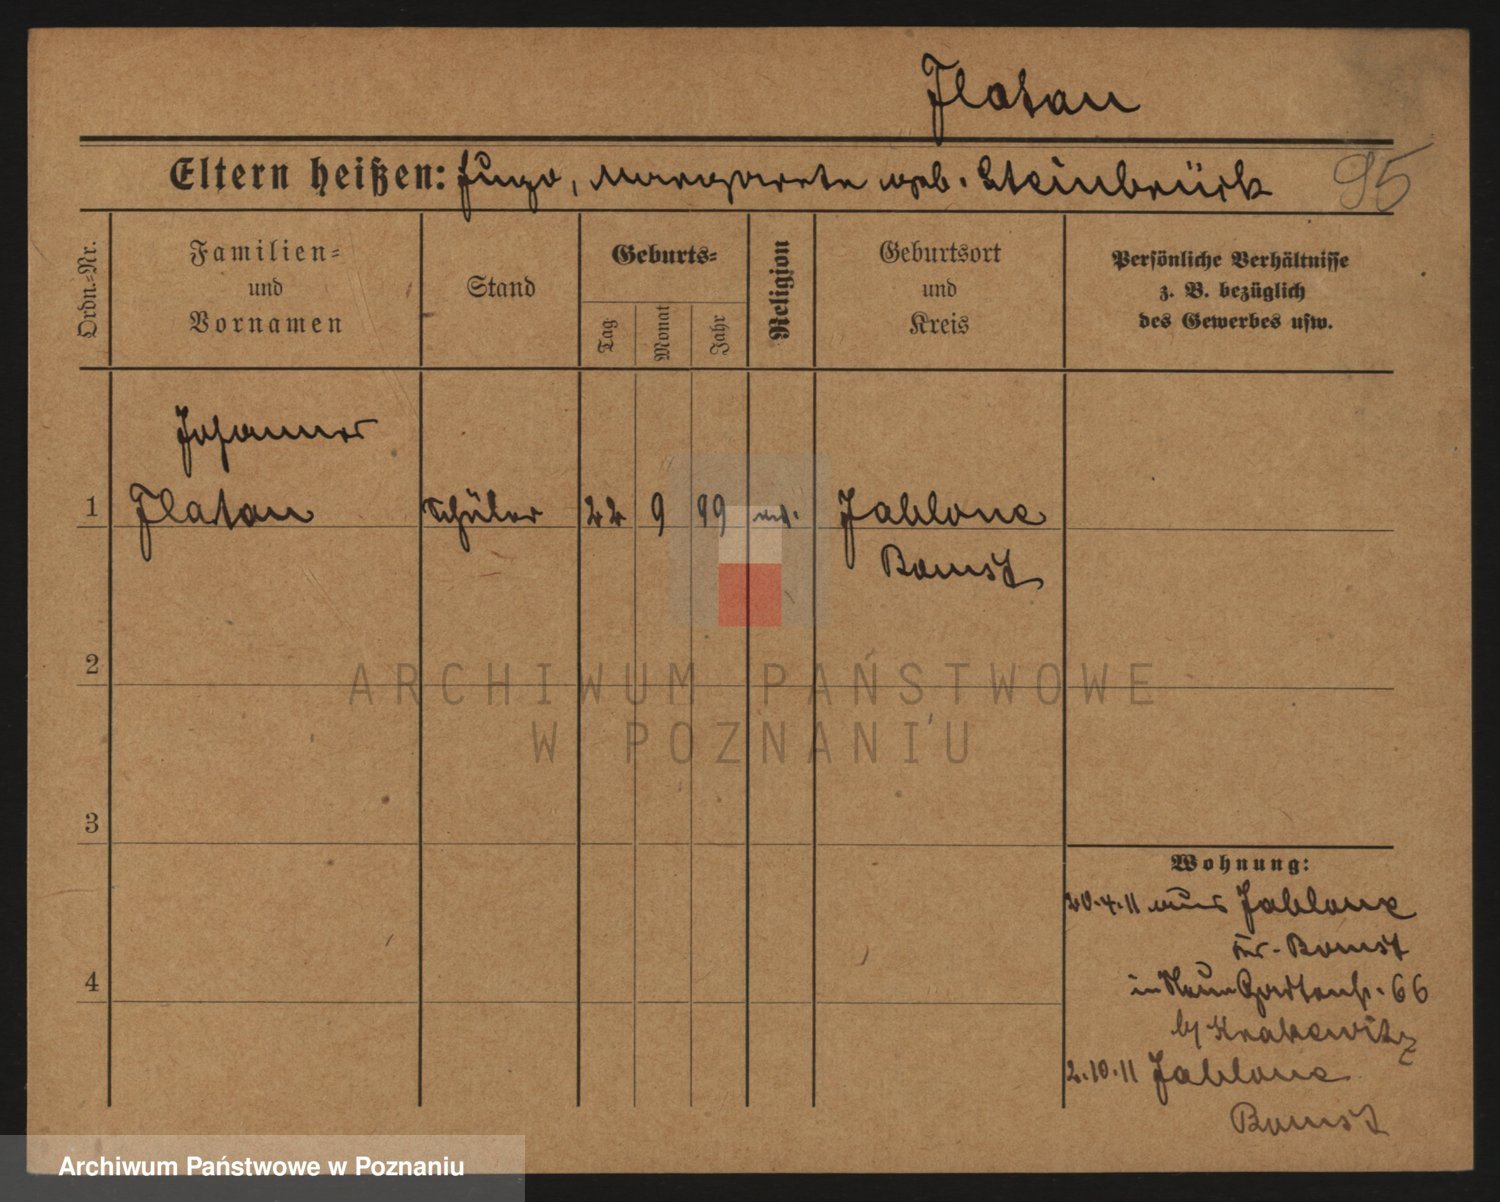 Flatau
Eltern heißen: Hugo, Margarete geb. Steinbrück
95
Ordn.-Nr.
Familien-
und
Vornamen
Stand
Geburts-
Tag
Monat
Jahr
Religion
Geburtsort
und
Kreis
Persönliche Verhältnisse
z. B. bezüglich
des Gewerbes usw.
Johannes
1 Flatau Schüler 22 9 99 Jablone
Bomst
2
ARCHIWUM PAŃSTWOWE
W POZNANIU
3
Wohnung:
20.4.11 aus Jablone
Kr. Bomst
in 66
by
4
2.10.11 Jablone
Bomst
Archiwum Państwowe w Poznaniu